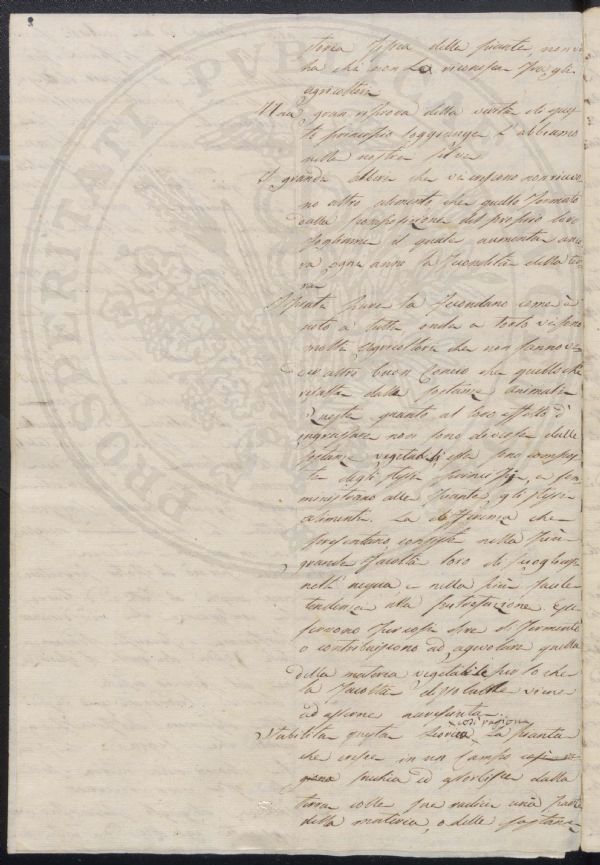 PROSPERITATI PUBLICAE
teria sopra delle piante, non v'
ha chi non lo riconosca fra gli
agricoltori
Una gran riprova della verità di ques
to principio soggiunge l'abbiamo
nelle nostre selve
I grandi alberi che vi crescono non ricevo
no altro alimento che quello formato
dalla scomposizione del proprio loro
fogliame il quale aumenta anco
ra ogni anno la fecondità della ter
ra
I prati pure la fecondano come è
noto a tutti onde a torto vi sono
molti agricoltori che non fanno u
so altro buon concio che quello che
risulta dalle sostanze animali
queste quanto al loro effetto d'
ingrassare non sono diverse dalle
sostanze vegetabili esse sono compos
te degli stessi principj, e som
ministrano alle piante gli stessi
alimenti. La differenza che
presentano consiste nella più
grande facoltà loro di sciogliersi
nell'acqua e nella più facile
tendenza alla putrefazione. esse
servono per così dire di fermento
o contribuiscono ad agevolare quella
della materia vegetabile per lo che
la facoltà dissolvente viene
ad esserne aumentata.
Stabilita questa teoria così ragiona La pianta
che cresce in un Campo
nutrica ed assorbisce dalla
terra colle sue radici una parte
della materia, o delle sostanze